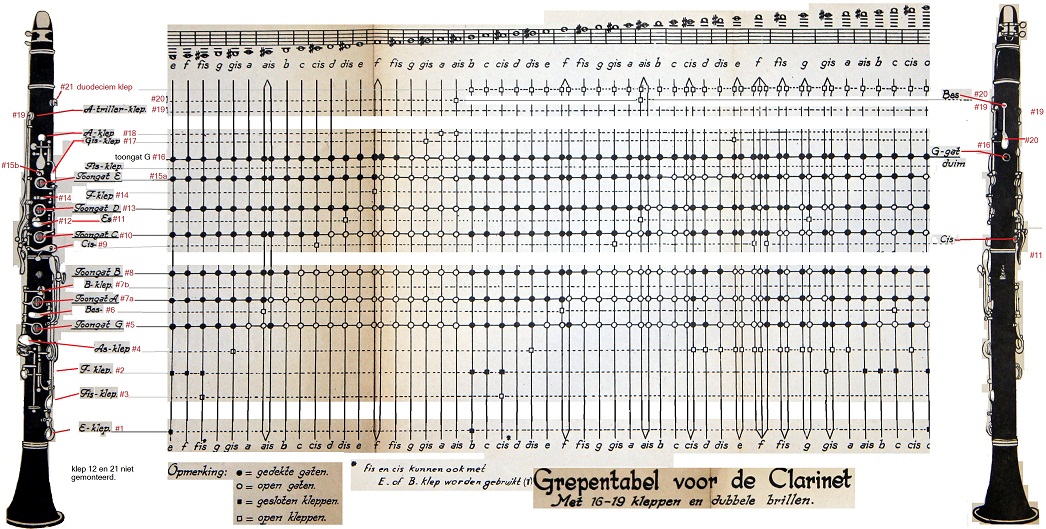 e f fis g gis a ais b c cis d dis e f fis g gis a ais b c cis d dis e f fis g gis a ais b c cis d dis e f fis g gis a ais b c cis d
#21 duodeciem klep
#20
A-triller-klep. #19
#19
A-klep #18
Gis-klep #17
toongat G #16
Fis-klep
#15b
Toongat E #15a
F-klep #14
#14
Toongat D #13
#12 Es #11
Toongat C #10
Cis- #9
Toongat B #8
B-klep. #7b
Toongat A #7a
Bes- #6
Toongat G #5
As-klep #4
F-klep. #2
Fis-klep. #3
E-klep. #1
Bes #20
#19
#19
#20
#16
G-gat
duim
Cis
#11
e f fis* g gis a ais b c cis d dis e f fis g gis a ais b c cis* d dis e f fis g gis a ais b c cis d dis e f fis g gis a ais b c cis d
klep 12 en 21 niet
gemonteerd.
Opmerking: ● = gedekte gaten.
○ = open gaten.
■ = gesloten kleppen.
□ = open kleppen.
* fis en cis kunnen ook met
E. of B. klep worden gebruikt (1)
Grepentabel voor de Clarinet
Met 16-19 kleppen en dubbele brillen.